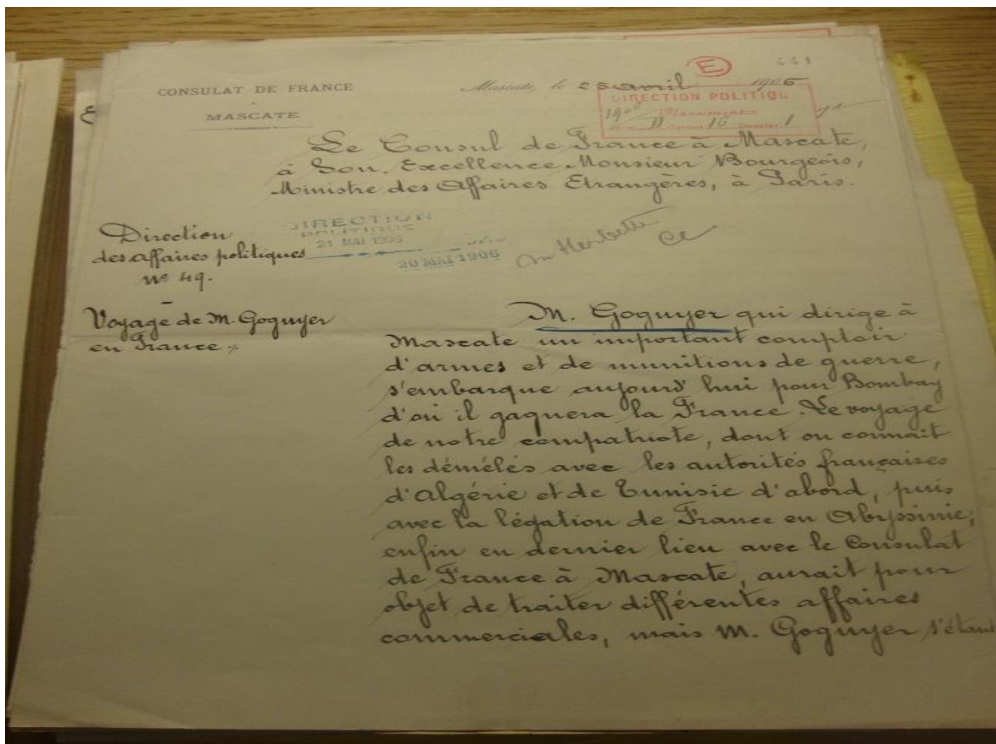 E
441
CONSULAT DE FRANCE
À
MASCATE
Mascate, le 25 avril 1906
DIRECTION POLITIQU
Le Consul de France à Mascate,
à Son Excellence Monsieur Bourgeois,
Ministre des Affaires Etrangères, à Paris.
Direction
des affaires politiques
N° 49.
DIRECTION
POLITIQUE
21 MAI 1906
20 MAI 1906
Voyage de M. Goguyer
en France
M. Goguyer qui dirige à
Mascate un important comptoir
d'armes et de munitions de guerre,
s'embarque aujourd'hui pour Bombay
d'où il gagnera la France. Le voyage
de notre compatriote, dont on connaît
les démêlés avec les autorités françaises
d'Algérie et de Tunisie d'abord, puis
avec la légation de France en Abyssinie,
enfin en dernier lieu avec le Consulat
de France à Mascate, aurait pour
objet de traiter différentes affaires
commerciales, mais M. Goguyer s'étant